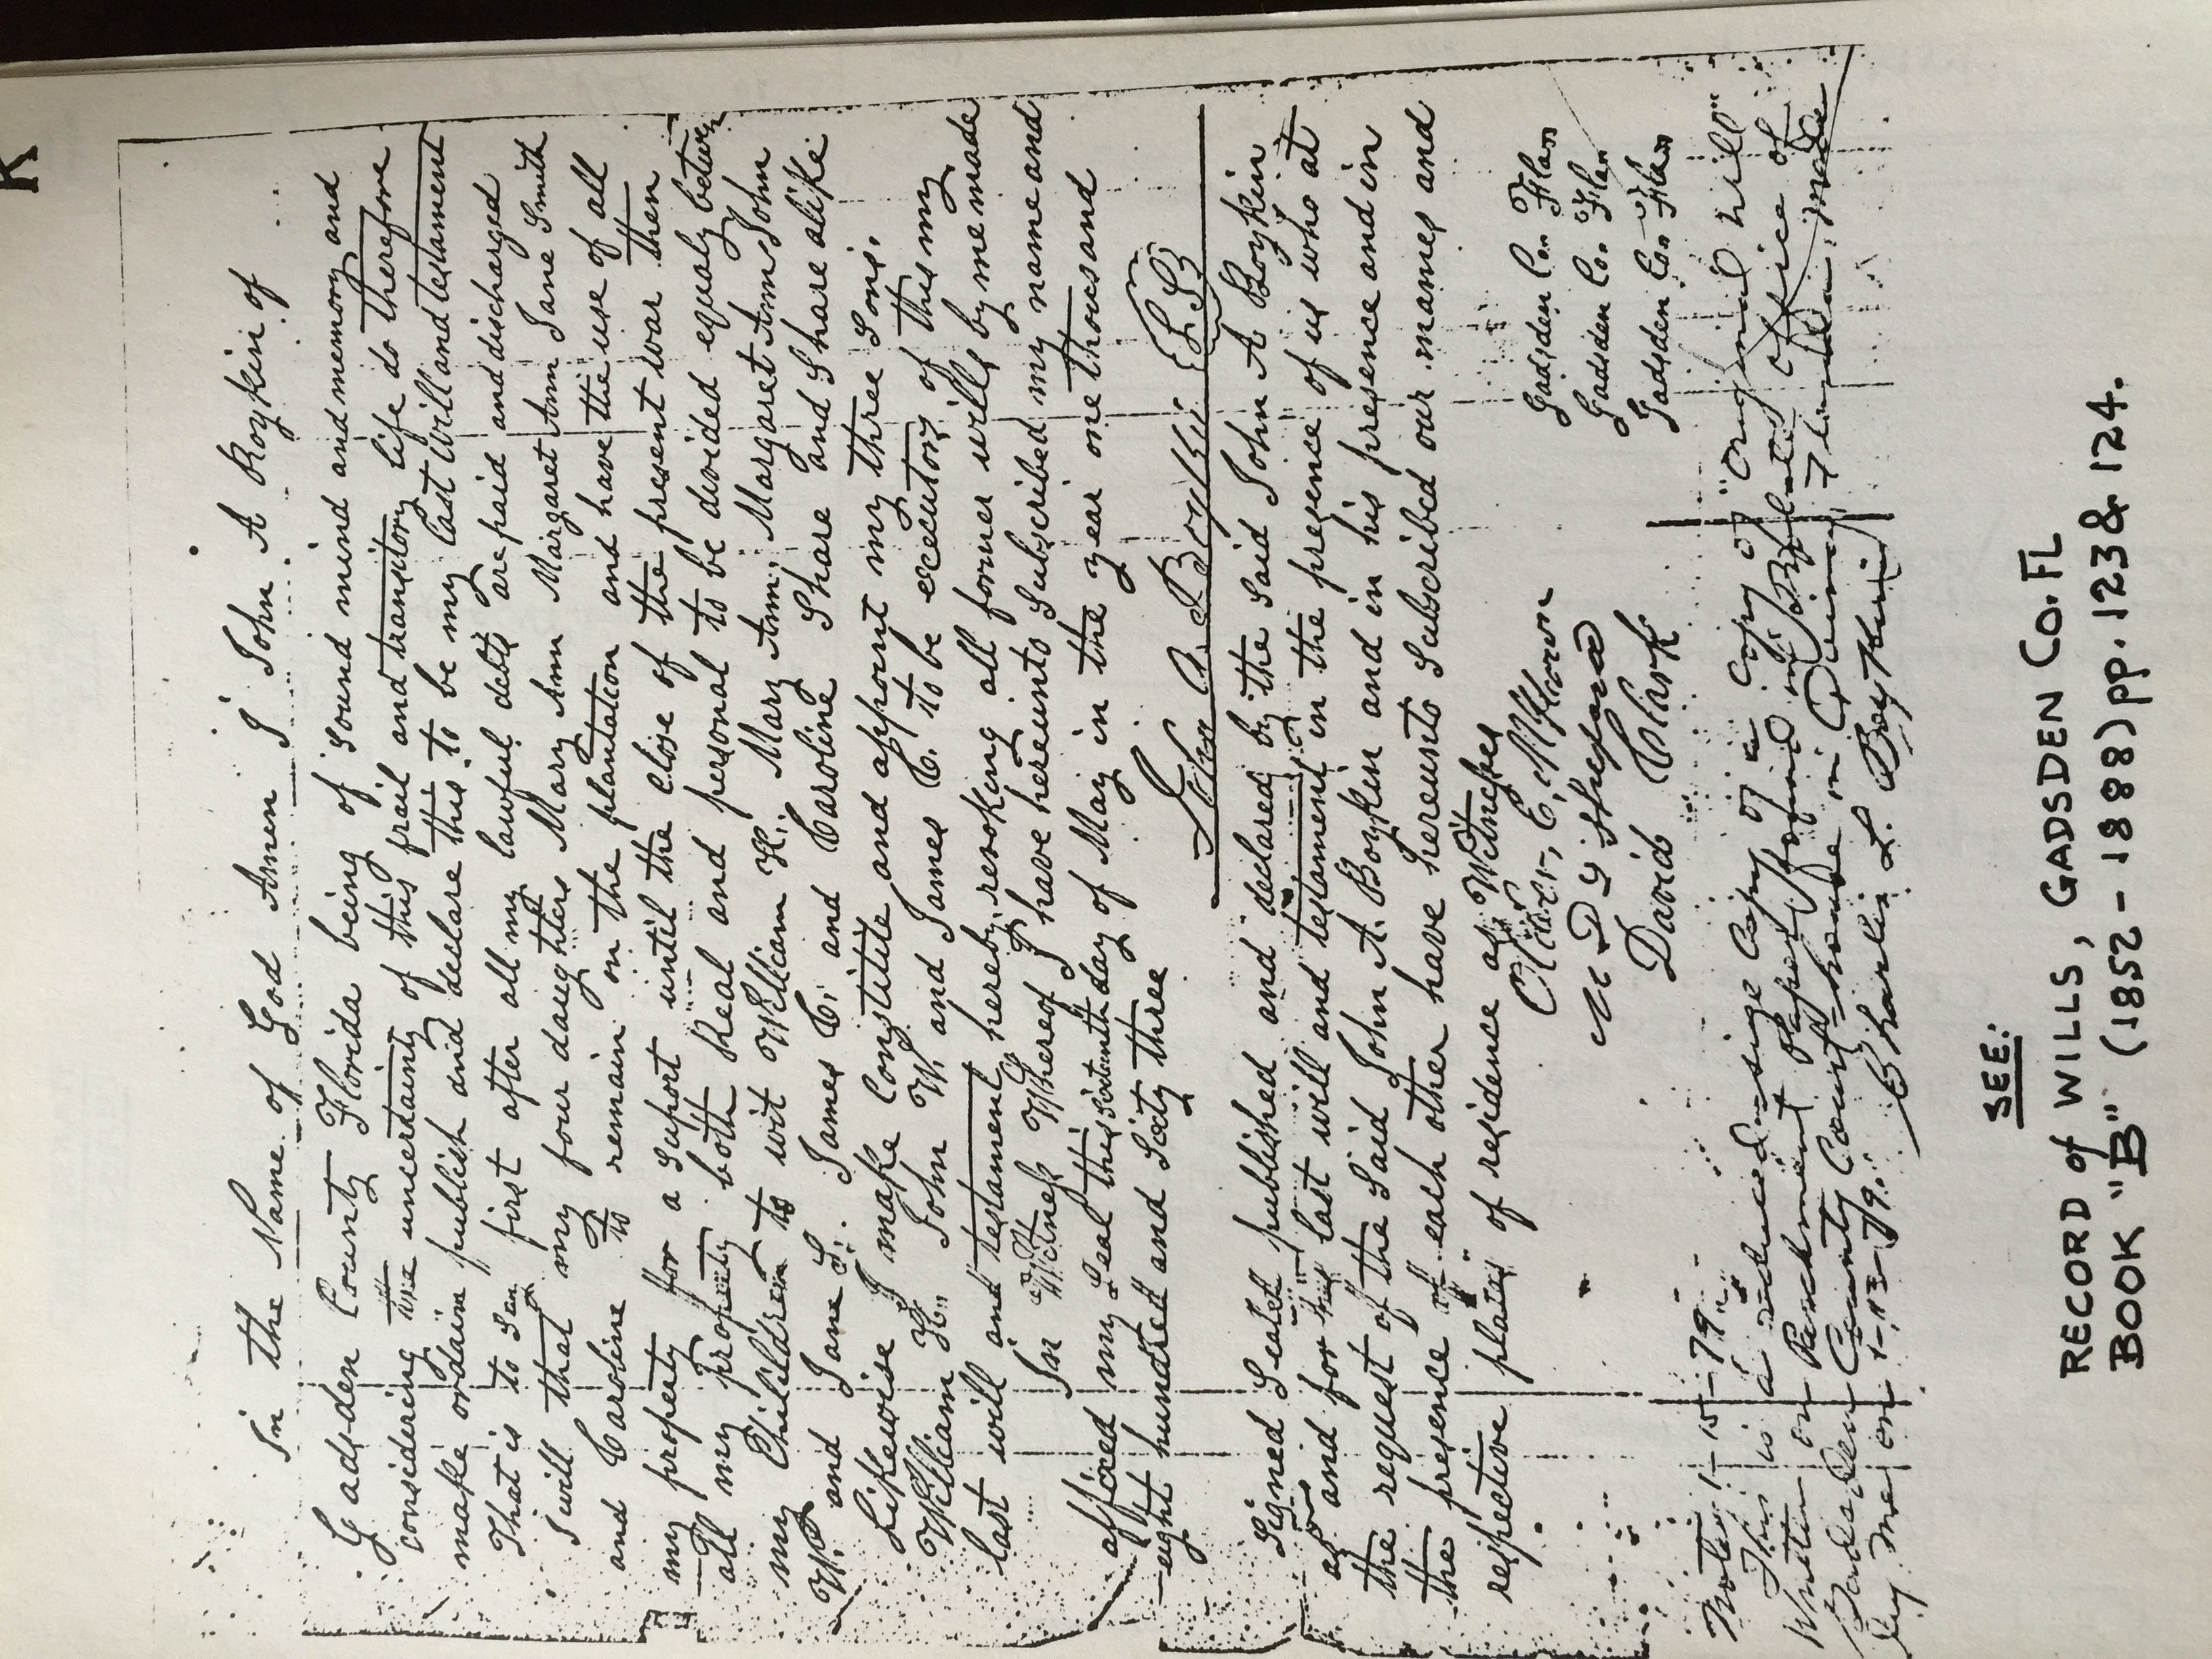 K
In the Name of God Amen I John A Boykin of
Gadsden County Florida being of Sound mind and memory and
considering the uncertainty of this frail and transitory life do therefore
make ordain publish and declare this to be my last Will and testament
That is to Say first after all my lawful debts are paid and discharged
I will that my four daughters Mary Ann Margaret Ann Jane Smith
and Caroline to remain on the plantation and have the use of all
my property for a Suport until the close of the present war then
all my property both Real and personal to be devided equaly between
my Children to wit William H. Mary Ann, Margaret Ann John
W. and Jane S. James C. and Caroline Share and Share alike
Likewise I make Constitute and appoint my three Sons,
William H. John W. and James C. to be executors of this my
last will and testament hereby revoking all former wills by me made
In Witness Whereof I have hereunto Subscribed my name and
affixed my Seal this day of May in the year one thousand
eight hundred and Sixty three
John A. Boykin {LS}
Signed Sealed published and declared by the Said John A Boykin
as and for his last will and testament in the presence of us who at
the request of the Said John A. Boykin and in his presence and in
the presence of each other have hereunto Subscribed our names and
respective places of residence as Witnesses
Gadsden Co. Fla
Gadsden Co. Fla
David Clark Gadsden Co. Fla
Note: 1-15-79
This is a reduced size copy of a copy of "Original Will"
Written on Parchment Paper (found in) Office of
Gadsden County Court house in Quincy Florida, made
by me on 1-13-79. Charlie L. Boykin
SEE:
RECORD of WILLS, GADSDEN CO. FL
BOOK "B" (1852-1888) pp. 123 & 124.